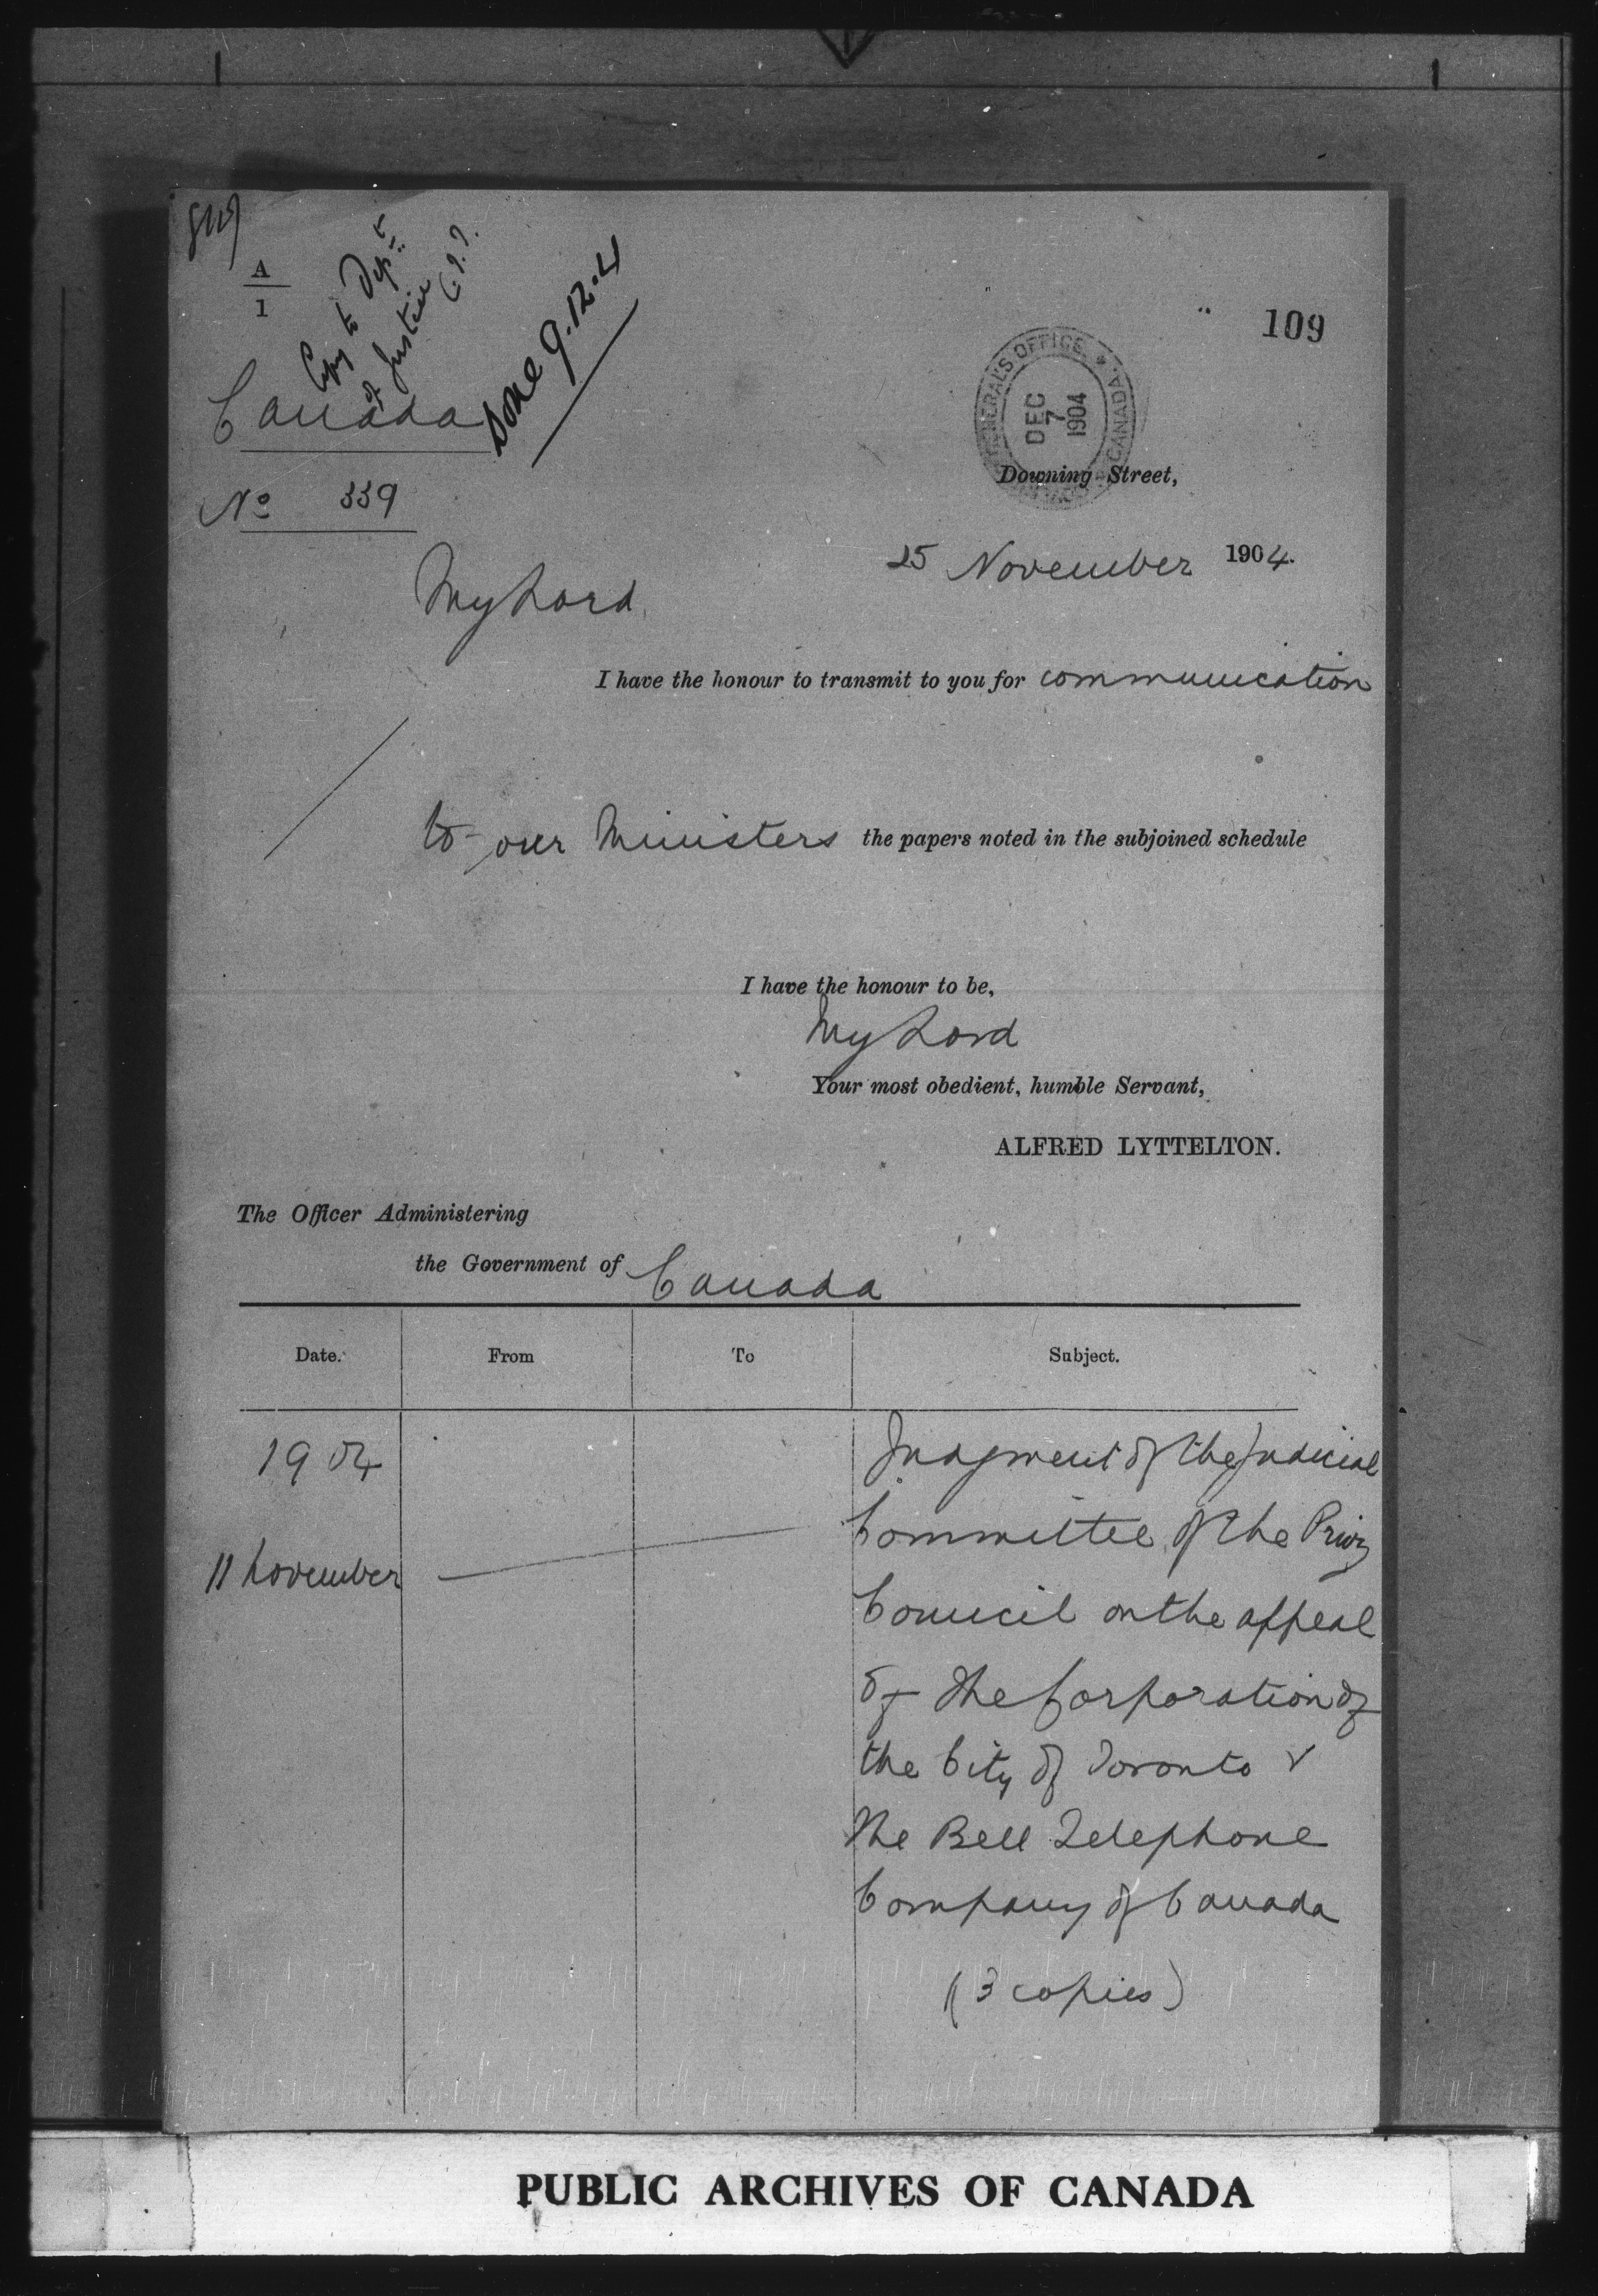 A
1
Copy to Dept
of Justice
Done 9.12.4
109
Canada
DEC
7
1904
No 339
Downing Street,
25 November 1904.
My Lord,
I have the honour to transmit to you for communication
to your Ministers the papers noted in the subjoined schedule
I have the honour to be,
My Lord
Your most obedient, humble Servant,
ALFRED LYTTELTON.
The Officer Administering
the Government of Canada
Date. From To Subject.
1904
11 November
Judgment of the Judicial
Committee of the Privy
Council on the appeal
of The Corporation of
the City of Toronto v
The Bell Telephone
Company of Canada
(3 copies)
PUBLIC ARCHIVES OF CANADA